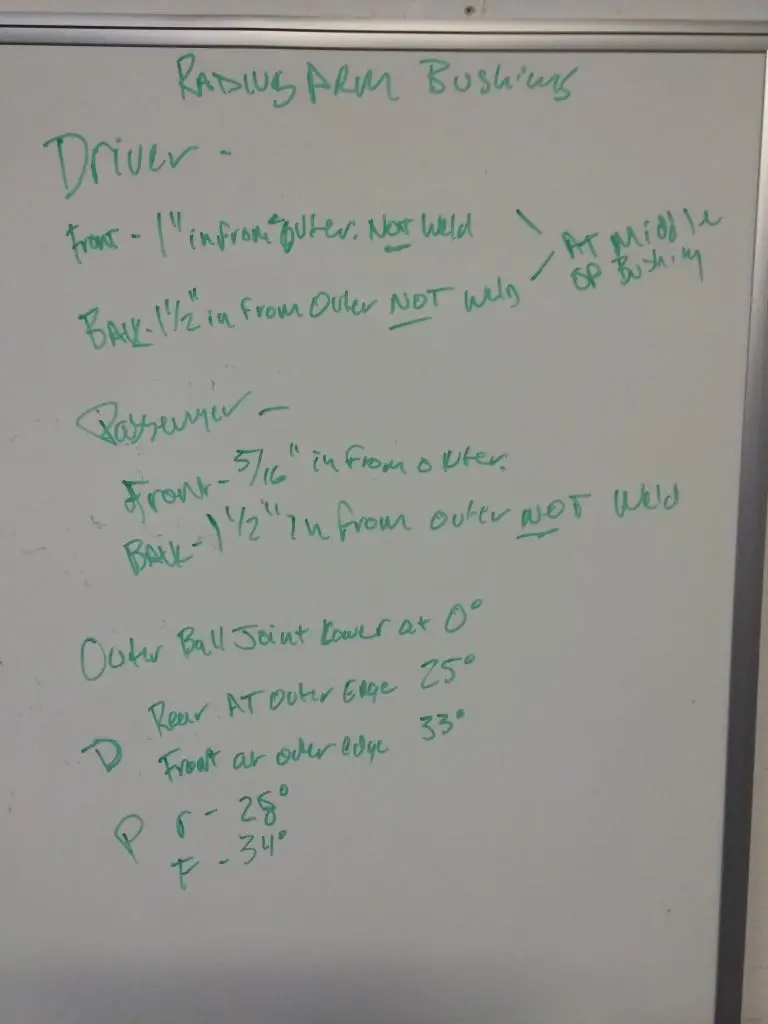 Radius Arm Bushings
Driver -
Front - 1" in from outer. NOT Weld
Back - 1 1/2" in from Outer NOT Weld
AT Middle
OF Bushing
Passenger -
Front - 5/16" in from outer.
Back - 1 1/2" in from outer NOT Weld
Outer Ball Joint Lower at 0°
D Rear AT Outer Edge 25°
Front at outer edge 33°
P r - 28°
F - 34°